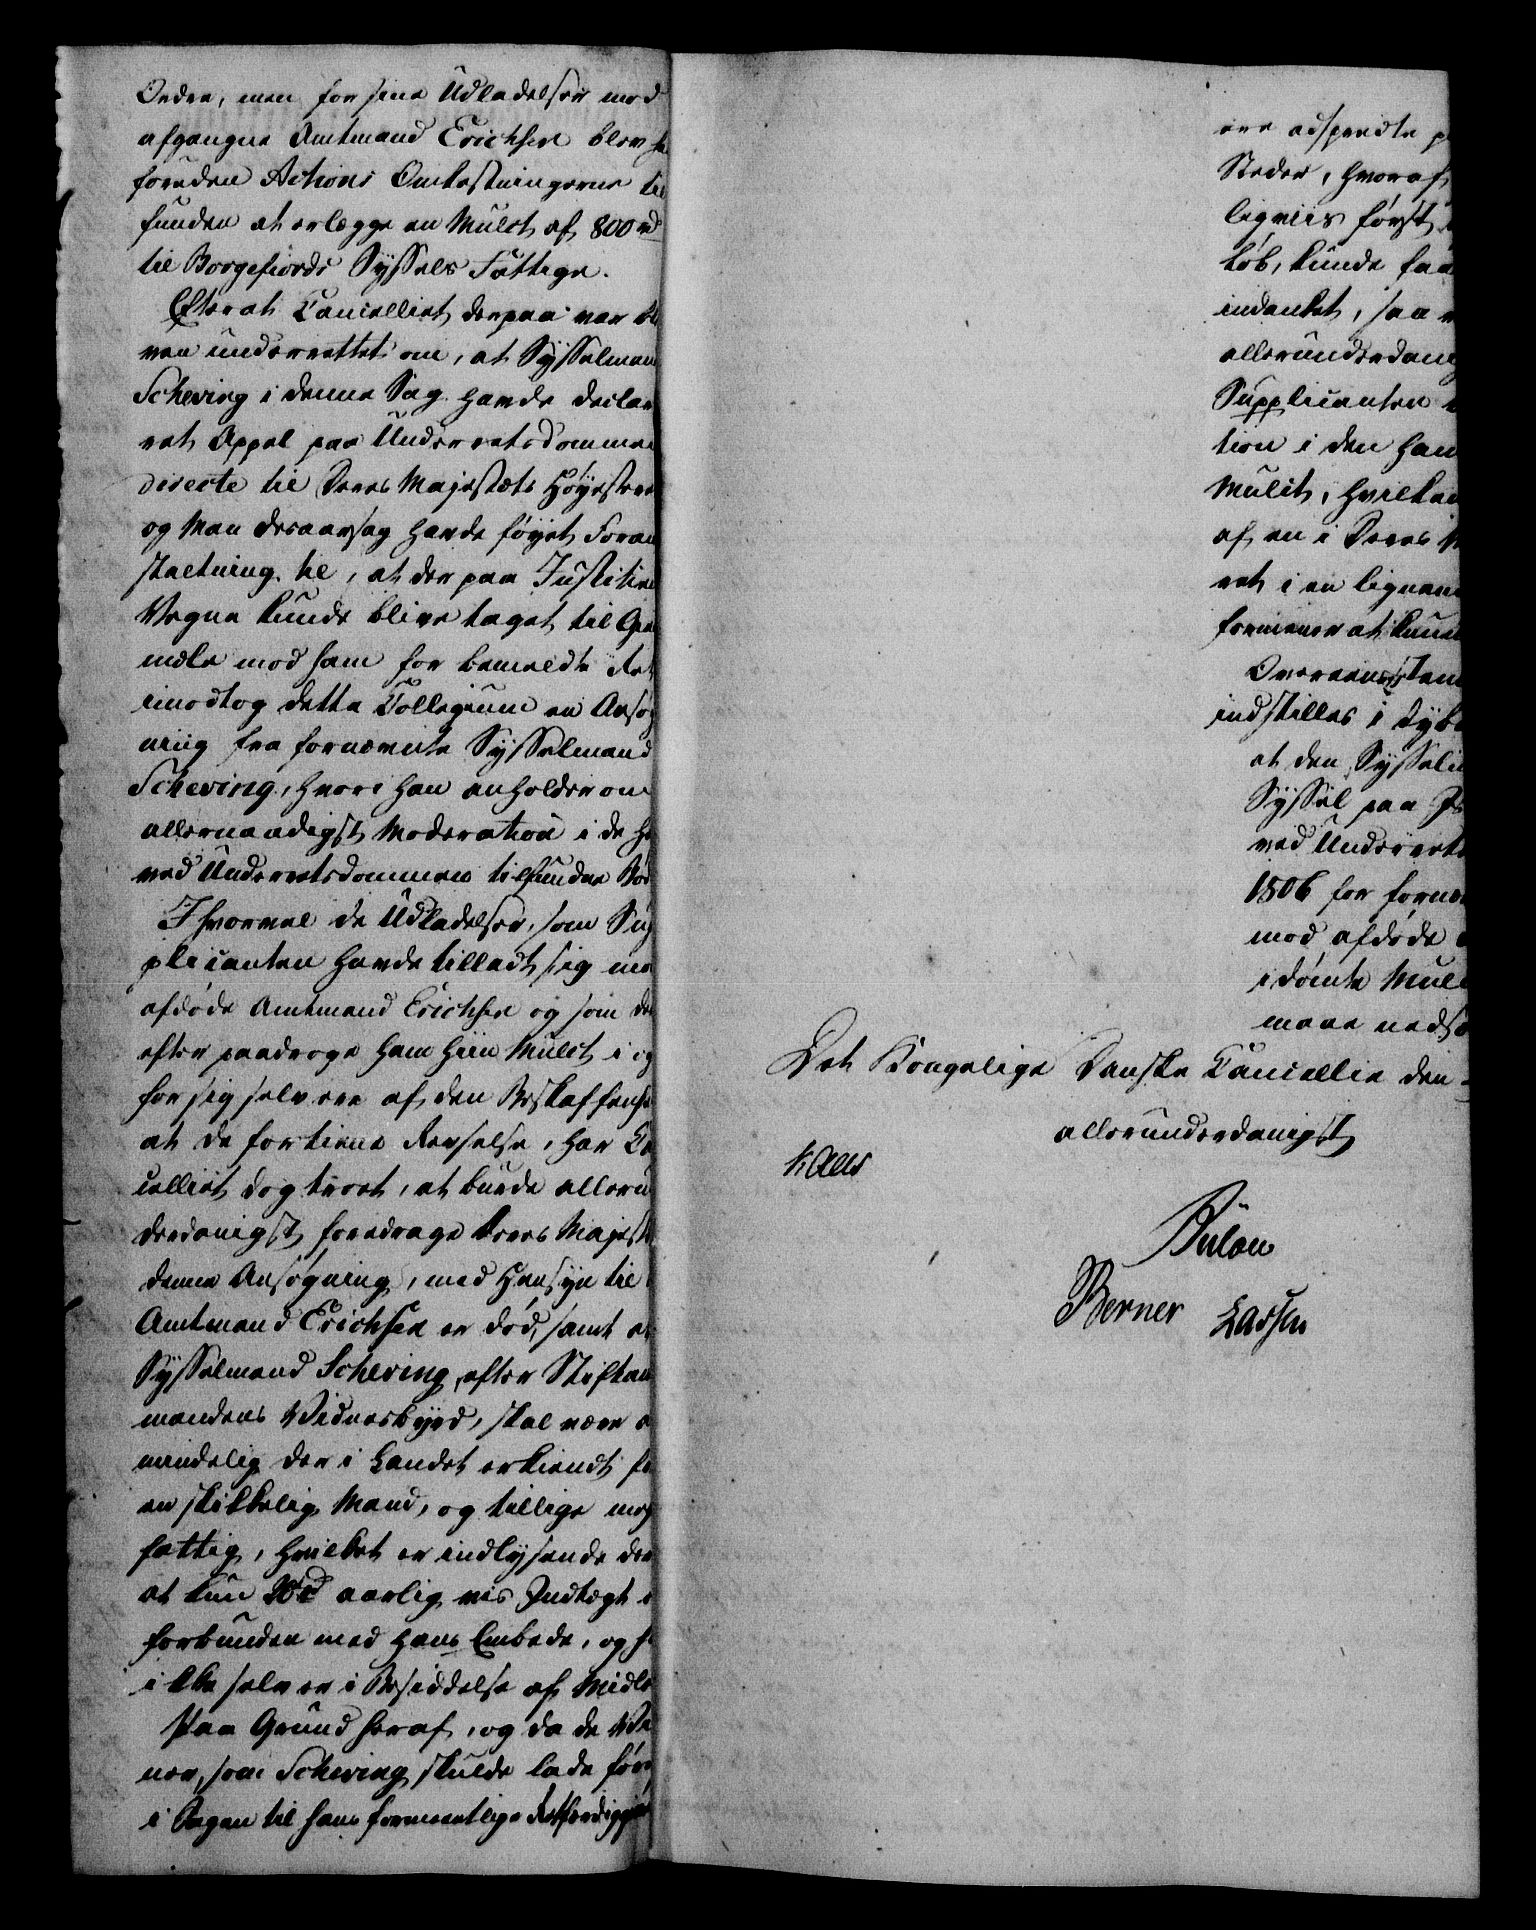 Orden, men for sine Udladelser mod
afgangne Amtmand Erichsen blev ha
foruden Actions Omkostningerne til
funden at erlægge en Mulct af 800 rd
til Borgefiords Syssels Fattige.
Efterat Cancelliet derpaa var ble
ven underrettet om, at Sysselman
Scheving i denne Sag havde decla
ret Appel paa Underretsdommen
directe til Deres Majestæts Høyester
og man desaarsag havde føyet Foran
staltning til, at der paa Justitiens
Vegne kunde blive taget til Gie
mæle mod ham for bemeldte Ret
imodtog dette Collegium en Ansøg
ning fra fornævnte Sysselmand
Scheving, hvori han anholder om
allernaadigst Moderation i de ha
ved Underretsdommen tilfundne Bød
Ihvorvel de Udladelser, som Sup
plicanten havde tilladt sig mod
afdøde Amtmand Erichsen og som der
efter paadroge ham hiin Mulct i og
for sig selv ere af den Beskaffenhed
at de fortiene Revselse, har Can
celliet dog troet, at burde alleru
derdanigst foredrage Deres Majest
denne Ansøgning, med Hensyn til
Amtmand Erichsen er død, samt at
Sysselmand Scheving, efter Stiftam
mandens Vidnesbyrd, skal være al
mindelig der i Landet erkiendt for
en skikkelig Mand, og tillige meg
fattig, hvilket er indlysende der
at kun aarlig vis Indtægt e
forbunden med hans Embede, og ha
ikke selv er i Besiddelse af Midle
Paa Grund heraf, og da de Vid
ner, som Scheving skulde lade føre
i Sagen til hans formeentlige Retfærdiggiør
ere adspredte p
Steder, hvoraf
ligviis først
løb, kunde faa
indanket, saa
allerunderdanig
Supplicanten
tion i den ham
Mulct, hvilken
af en i Deres
ret i en lignen
formener at kun
Overeensstem
indstilles i dybe
at den Sysselm
Syssel paa Is
ved Underrets
1806 for forme
mod afdøde
idømte Mul
maae nedsæ
Det Kongelige Danske Cancellie den
allerunderdanigst
Kaas
Bülow
Berner Lassen